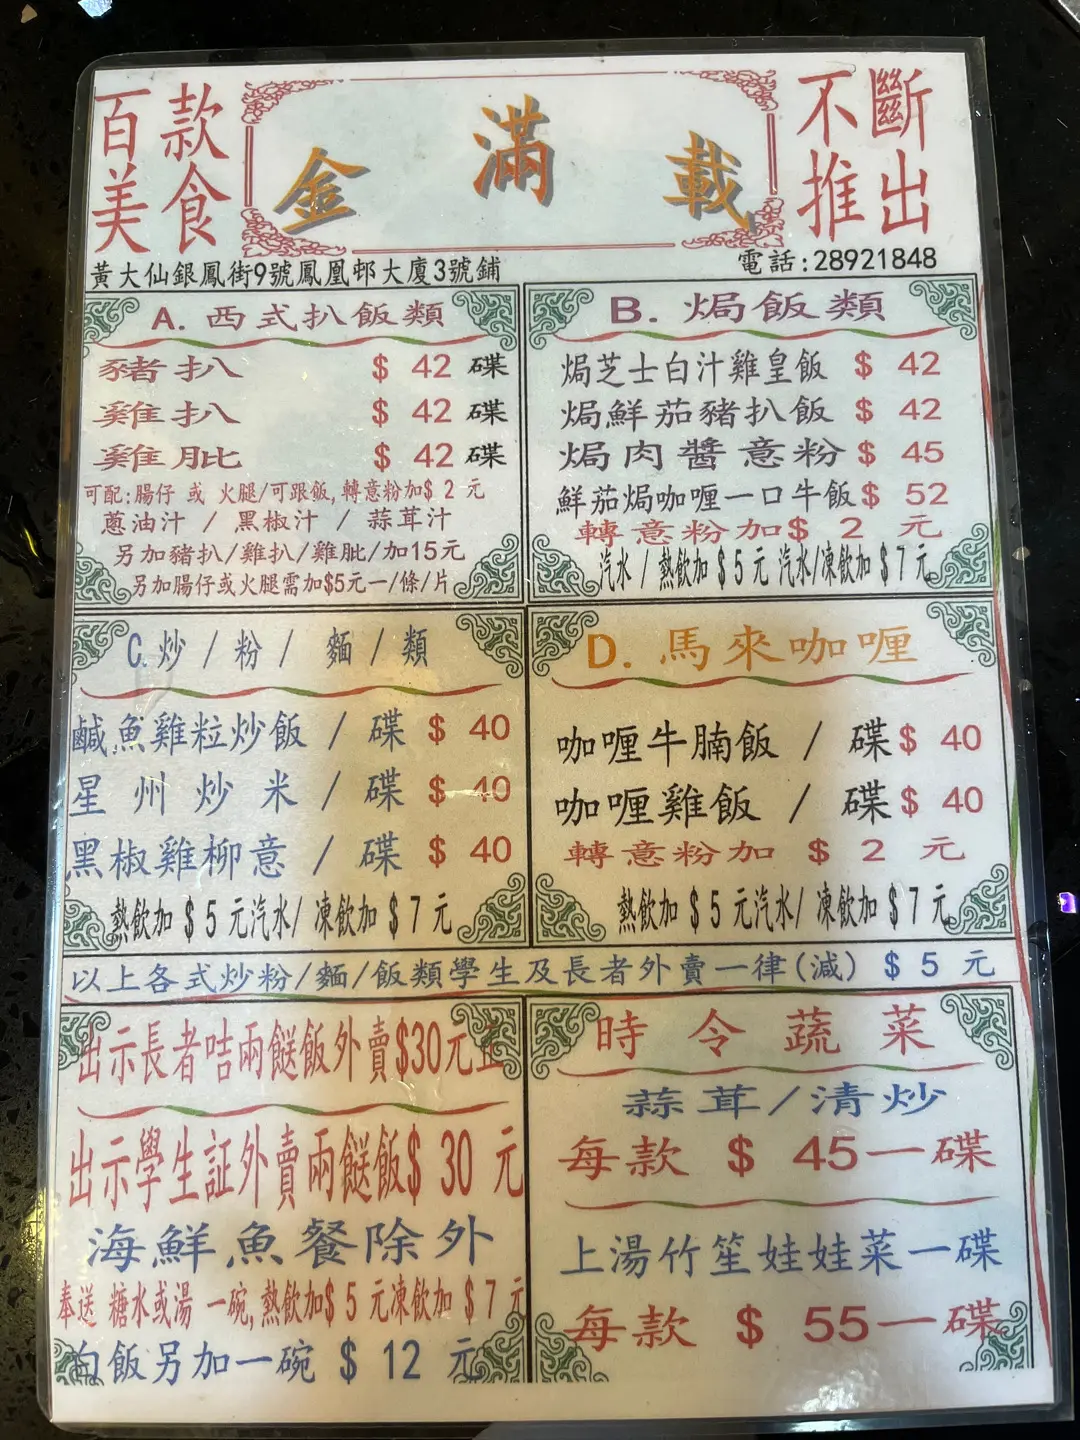 百款美食
金滿載
不斷推出
黃大仙銀鳳街9號鳳凰邨大廈3號鋪
電話:28921848
A. 西式扒飯類
豬扒 $ 42 碟
雞扒 $ 42 碟
雞肶 $ 42 碟
可配:腸仔 或 火腿/可跟飯,轉意粉加$ 2 元
蔥油汁 / 黑椒汁 / 蒜茸汁
另加豬扒/雞扒/雞肶/加15元
另加腸仔或火腿需加$5元一/條/片
B. 焗飯類
焗芝士白汁雞皇飯 $ 42
焗鮮茄豬扒飯 $ 42
焗肉醬意粉 $ 45
鮮茄焗咖喱一口牛飯 $ 52
轉意粉加$ 2 元
汽水 / 熱飲加 $ 5 元 汽水/凍飲加 $ 7 元
C. 炒 / 粉 / 麵 / 類
鹹魚雞粒炒飯 / 碟 $ 40
星州炒米 / 碟 $ 40
黑椒雞柳意 / 碟 $ 40
熱飲加 $ 5 元汽水/ 凍飲加 $ 7 元
D. 馬來咖喱
咖喱牛腩飯 / 碟 $ 40
咖喱雞飯 / 碟 $ 40
轉意粉加 $ 2 元
熱飲加 $ 5 元汽水/ 凍飲加 $ 7 元
以上各式炒粉/麵/飯類學生及長者外賣一律(減) $ 5 元
出示長者咭兩餸飯外賣$30元正
出示學生証外賣兩餸飯$ 30 元
海鮮魚餐除外
奉送 糖水或湯 一碗,熱飲加$ 5 元凍飲加 $ 7 元
白飯另加一碗 $ 12 元
時令蔬菜
蒜茸/清炒
每款 $ 45一碟
上湯竹笙娃娃菜一碟
每款 $ 55一碟